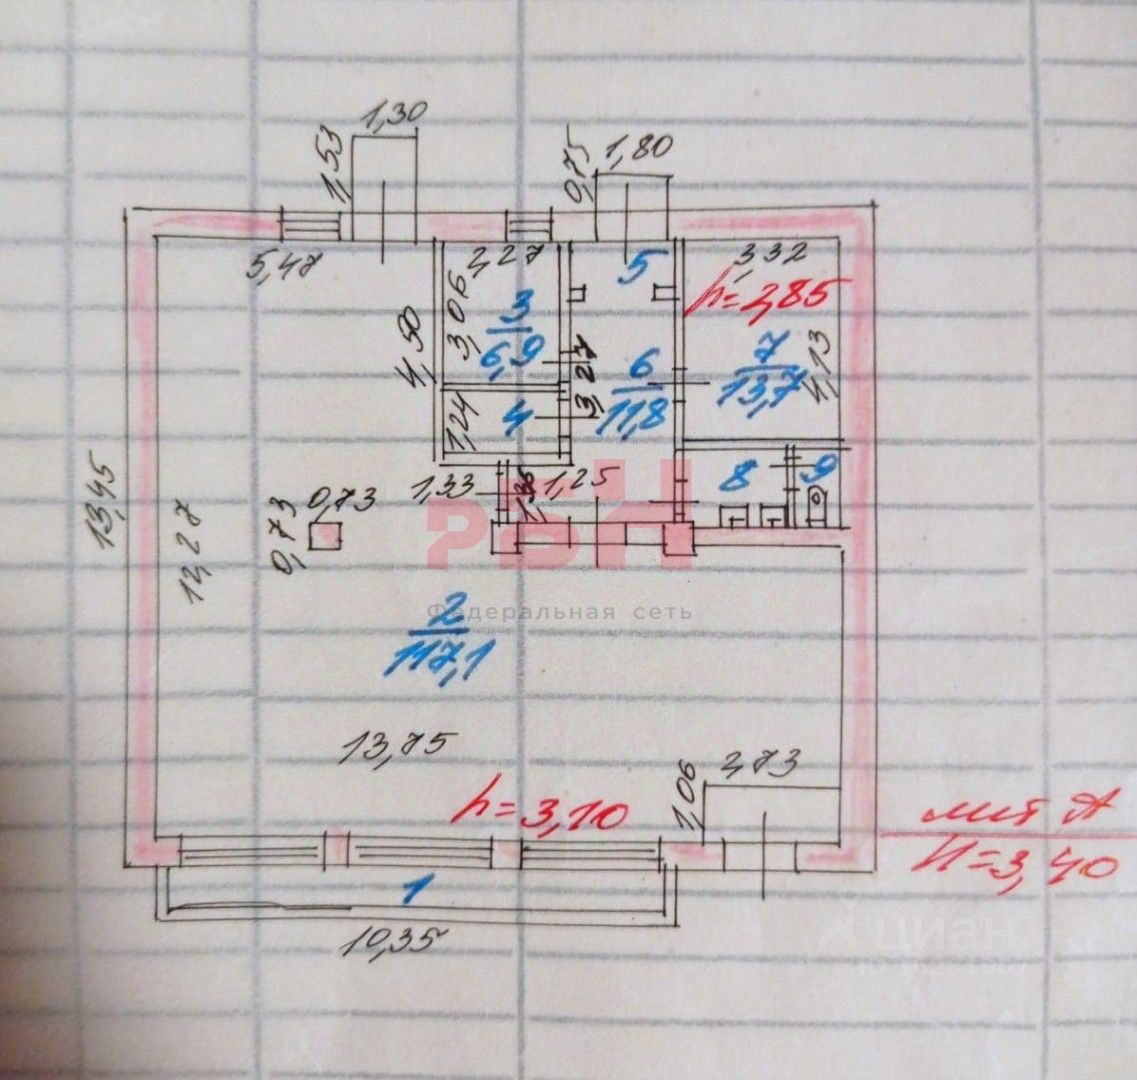 1,30
1,53
0,75
1,80
5,47
2,27
5
3,32
h=2,85
3,06
3
6,9
4,50
3,27
6
11,8
7
13,7
4,13
1,24
4
8
9
13,45
1,33
1,36
1,25
0,73
0,73
12,27
РБН
Федеральная сеть
2
117,1
13,75
2,73
1,06
h=3,10
лит А
H=3,40
1
10,35
циан